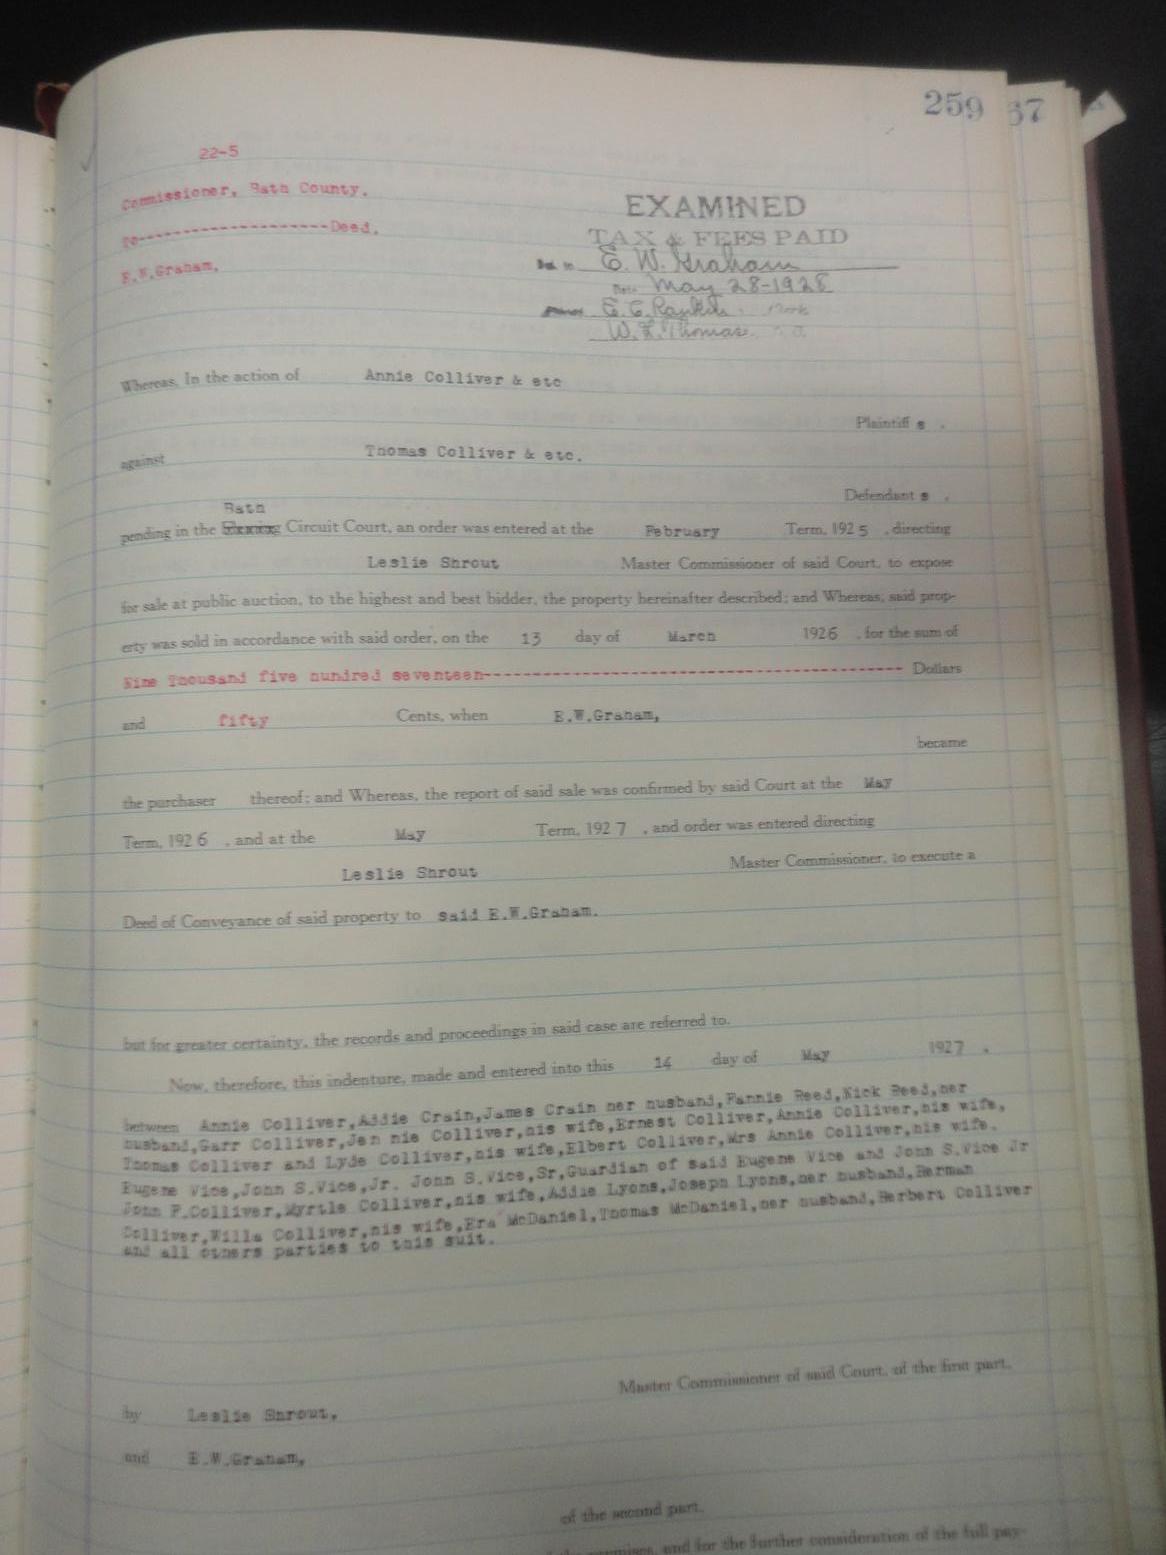 259
67
22-5
Commissioner, Bath County.
To---------------------Deed.
E.W.Graham,
EXAMINED
TAX & FEES PAID
E. W. Graham
Date May 28-1928
E. C. Rankin Clerk
W. L. Thomas
Whereas, In the action of Annie Colliver & etc
Plaintiff s .
against Thomas Colliver & etc.
Defendant s .
Bath
pending in the Circuit Court, an order was entered at the February Term, 1925 , directing
Leslie Shrout Master Commissioner of said Court, to expose
for sale at public auction, to the highest and best bidder, the property hereinafter described; and Whereas, said prop-
erty was sold in accordance with said order, on the 13 day of March 1926 , for the sum of
Nine Thousand five hundred seventeen---------------------------------------------- Dollars
and fifty Cents, when E.W.Graham,
became
the purchaser thereof; and Whereas, the report of said sale was confirmed by said Court at the May
Term, 192 6 , and at the May Term, 192 7 , and order was entered directing
Leslie Shrout Master Commissioner, to execute a
Deed of Conveyance of said property to said E.W.Graham.
but for greater certainty, the records and proceedings in said case are referred to.
Now, therefore, this indenture, made and entered into this 14 day of May 1927 .
between Annie Colliver,Addie Crain,James Crain her husband,Fannie Reed,Nick Reed,her
husband,Garr Colliver,Jen nie Colliver,his wife,Ernest Colliver,Annie Colliver,his wife,
Thomas Colliver and Lyde Colliver,his wife,Elbert Colliver,Mrs Annie Colliver,his wife.
Eugene Vice,John S.Vice,Jr. John S.Vice,Sr,Guardian of said Eugene Vice and John S.Vice Jr
John F.Colliver,Myrtle Colliver,his wife,Addie Lyons,Joseph Lyons,her husband,Herman
Colliver,Willa Colliver,his wife,Era McDaniel,Thomas McDaniel,her husband,Herbert Colliver
and all others parties to this suit.
Master Commissioner of said Court, of the first part,
by Leslie Shrout,
and E.W.Graham,
of the second part.
premises, and for the further consideration of the full pay-